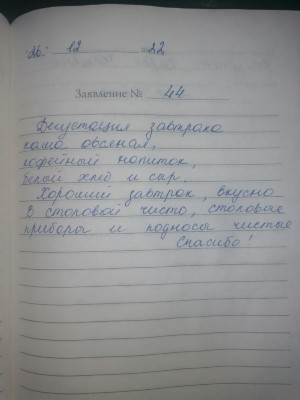 26. 12 22
Заявление № 44
Дегустация завтрака
каша овсяная,
кофейный напиток,
белый хлеб и сыр.
Хороший завтрак, вкусно
в столовой чисто, столовые
приборы и подносы чистые
Спасибо!